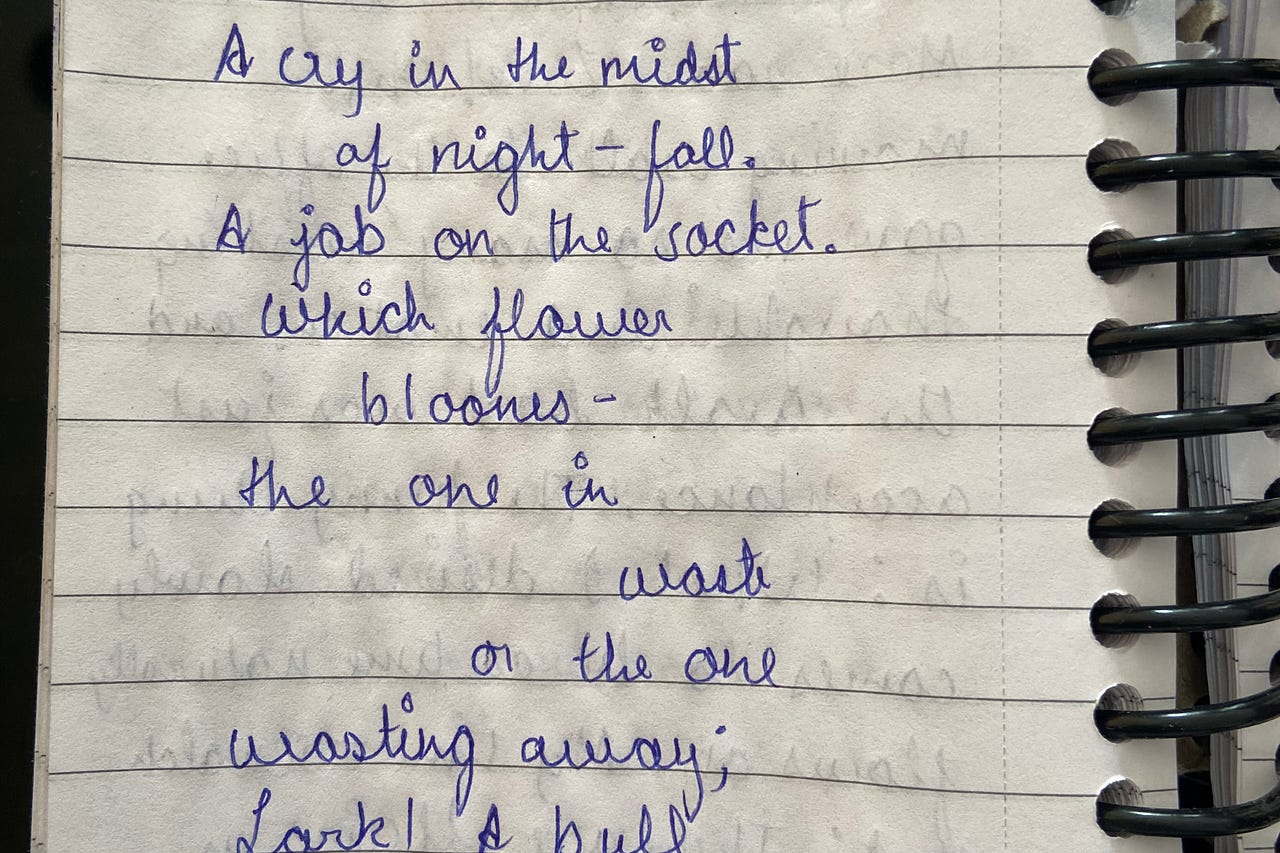 A cry in the midst
of night - fall.
A jab on the socket.
which flower
blooms -
the one in
waste
or the one
wasting away;
Lark! A bull